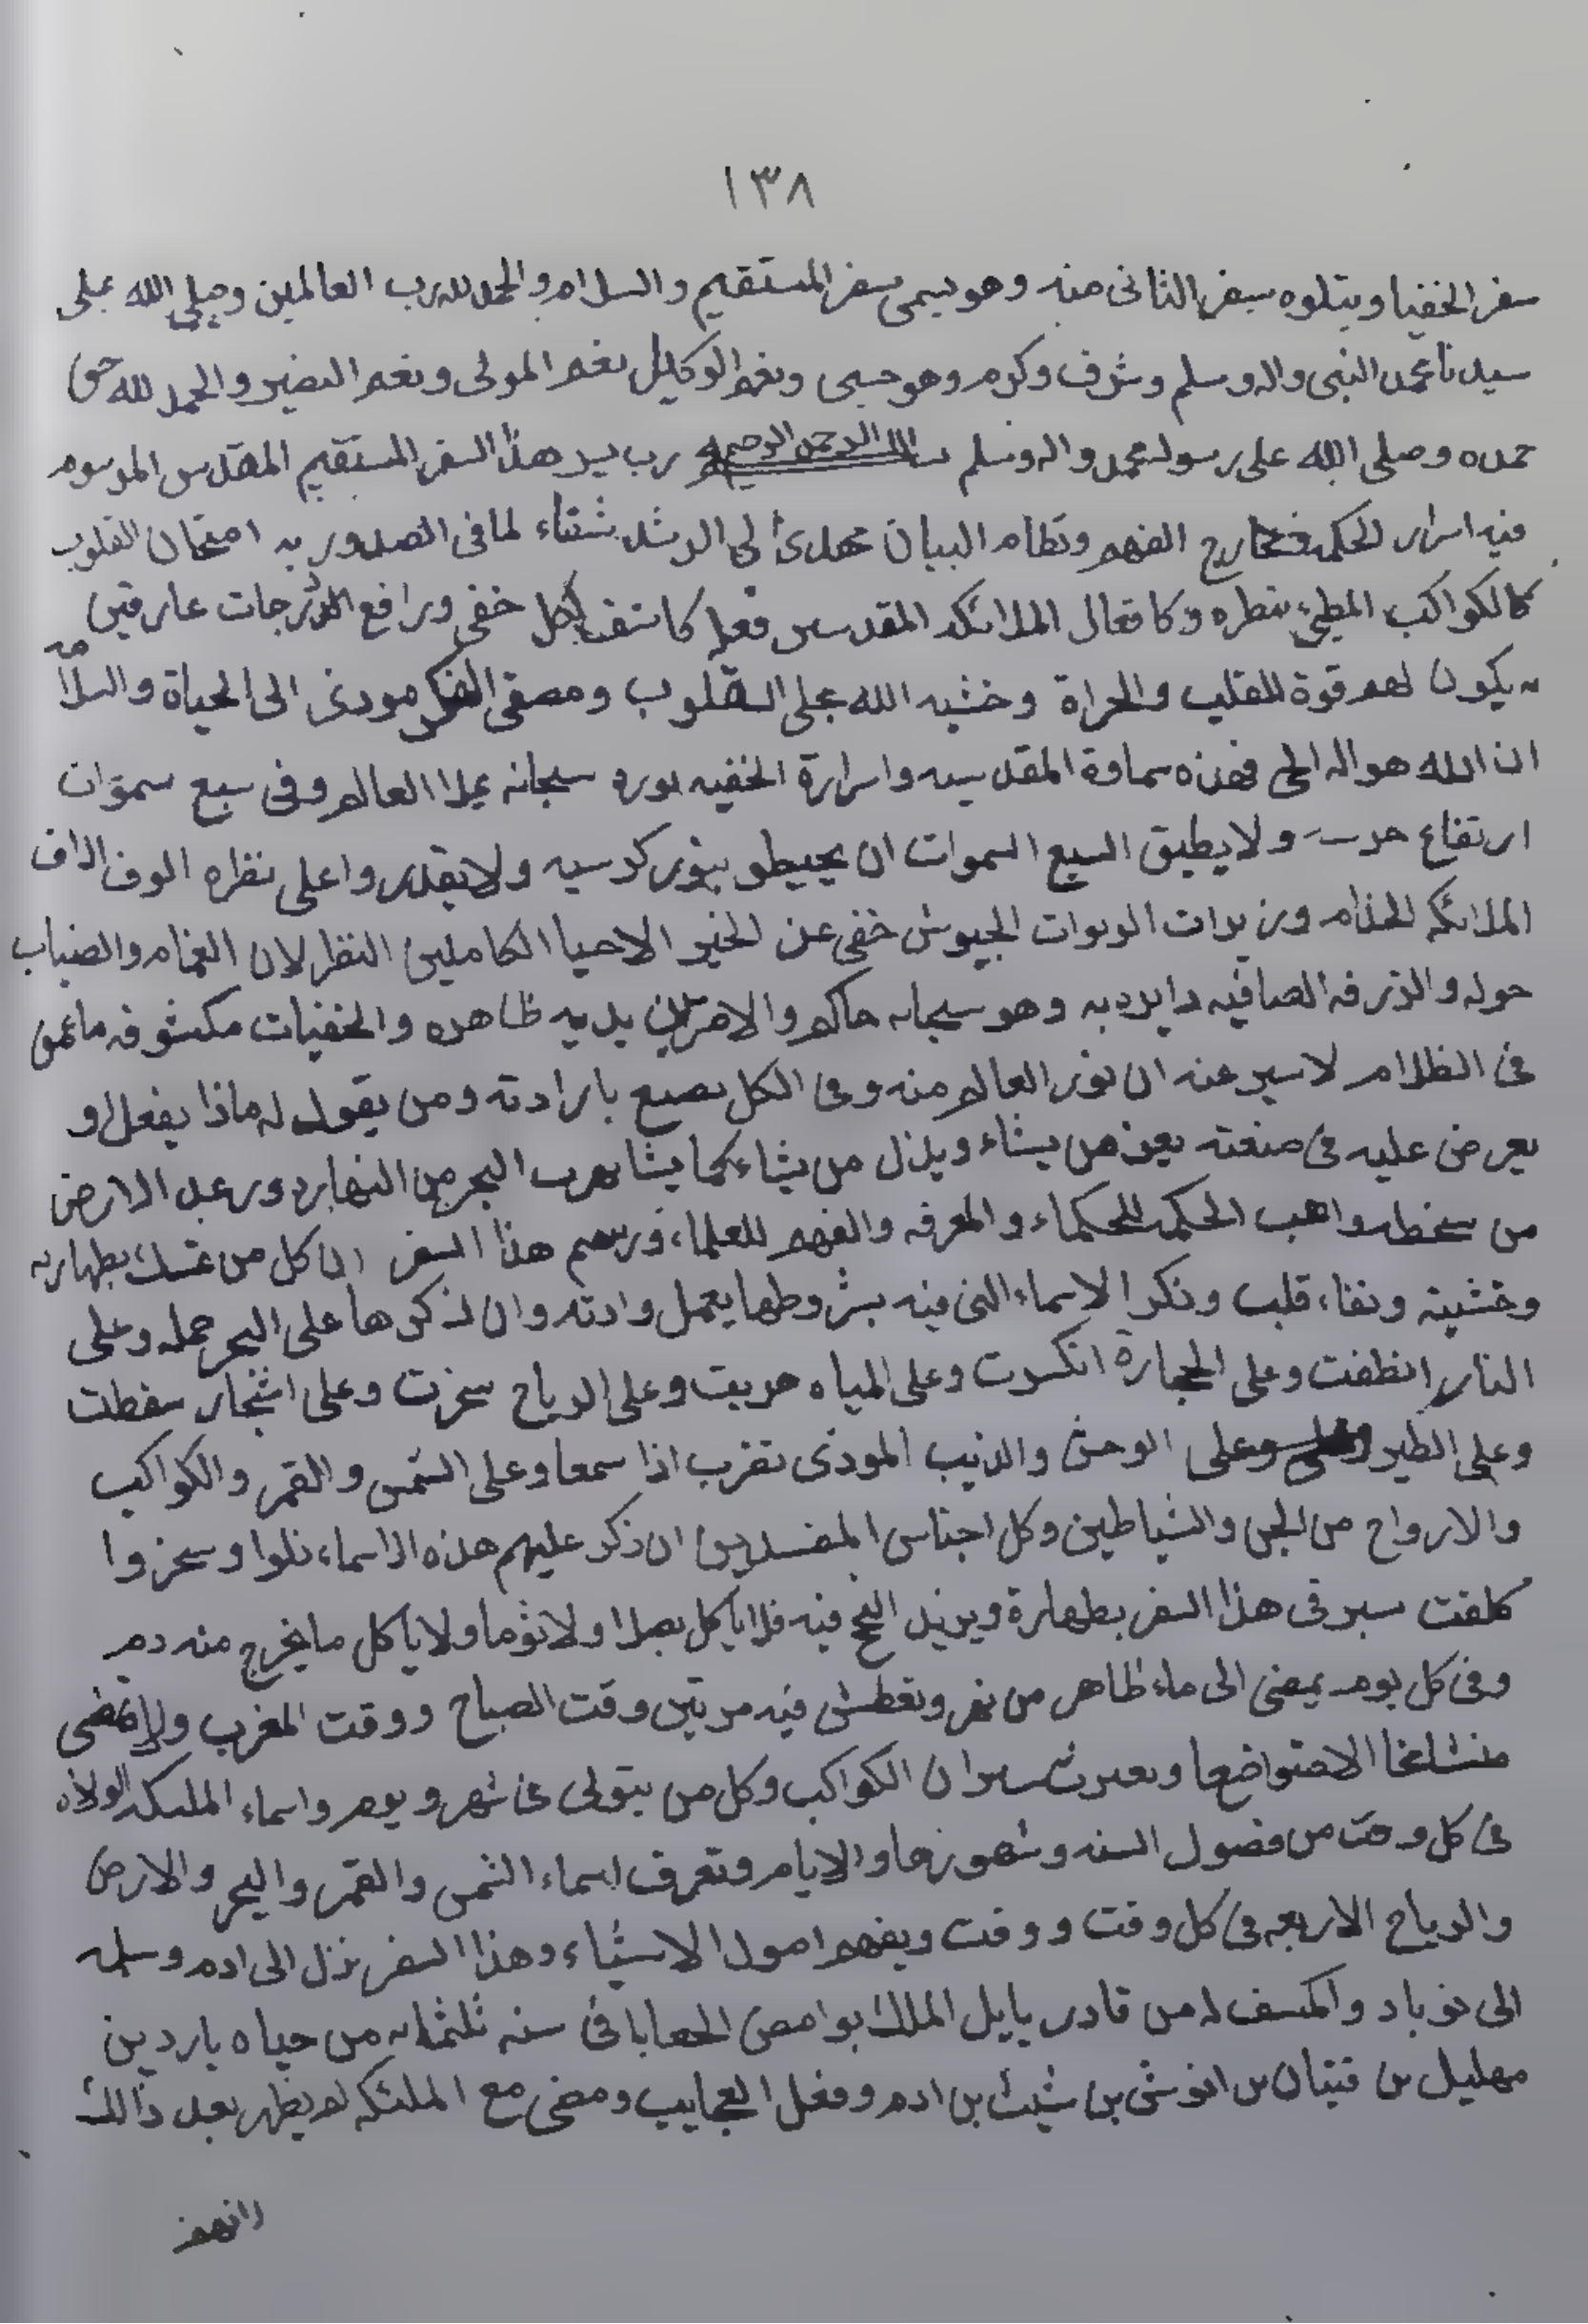 ١٣٨
سفر الخفيا ويتلوه سفر الثانى منه وهو يسمى سفر المستقيم والسلام والحمد لله رب العالمين وصلى الله على
سيدنا محمد النبى واله وسلم وشرف وكرم وهو حسبى ونعم الوكيل نعم المولى ونعم النصير والحمد لله حق
حمده وصلى الله على رسوله محمد واله وسلم الله الرحمن الرحيم رب يسر هذا السفر المستقيم المقدس المرسوم
فيه اسرار الحكمه الفهم ونظام البيان الى الرشد شفاء لما فى الصدور به امتحان القلوب
كالكواكب بنظره وكافعال الملائكه المقدسين فعله كاشف لكل خفى ورافع الدرجات عارفين
به يكون لهم قوة للقلب والجراة وخشيه الله على القلوب ومصفى الفكر مودى الى الحياة والسلامه
ان الله هو اله الحى فهذه سماوة المقدسيه واسرارة الخفيه نوره سبحانه يملا العالم وفى سبع سموات
ارتفاع ولا يطيق السبع السموات ان يحيطو بنور كرسيه ولا يقدروا على نظره الوف الاف
الملائكه الخدام الربوات الجيوش خفى عن الاحيا الكاملين النظر لان الغمام والضباب
حوله والزرقه الصافيه وهو سبحانه حاكم والامر بين يديه ظاهره والخفيات مكشوفه ما عمى
فى الظلام عنه ان نور العالم منه وفى الكل يصنع بارادته ومن يقول له ماذا يفعل او
يعرض عليه فى صنعته يعز من يشاء ويذل من يشاء كما يشا البحر من الارض
من سخطه واهب الحكمه للحكماء والمعرفه والفهم للعلماء ورسم هذا السفر ان كل من تمسك بطهاره
وخشيه ونقاء قلب وذكر الاسماء التى فيه بشروطها يعمل وان ذكرها على البحر حمله وعلى
النار انطفت وعلى الحجارة انكسرت وعلى المياه هربت وعلى الرياح سخرت وعلى اشجار سقطت
وعلى الطير وعلى الوحش والذيب الموذى تقرب اذا سمعا وعلى الشمس والقمر والكواكب
والارواح من الجن والشياطين وكل اجناس المفسدين ان ذكر عليهم هذه الاسماء ذلوا وسخروا
فى هذا السفر بطهارة فيه فلا ياكل بصلا ولا ثوما ولا ياكل ما يخرج منه دم
وفى كل يوم يمضى الى ماء طاهر من نهر ويغطس فيه مرتين وقت الصباح ووقت المغرب ولا تمضى
الا متواضعا الكواكب وكل من يتولى فى شهر ويوم واسماء الملئكه الولاه
فى كل وقت من فصول السنه وشهورها والايام وتعرف اسماء الشمس والقمر والبحر والارض
والرياح الاربعه فى كل وقت ووقت ويفهم اصول الاشياء وهذا السفر نزل الى ادم وسلمه
الى له من قادر يايل الملك فى سنه ثلثمايه من حياه يارد بن
مهليل بن قينان بن انوش بن شيث بن ادم وفعل العجايب ومضى مع الملئكه لم يظهر بعد ذالك